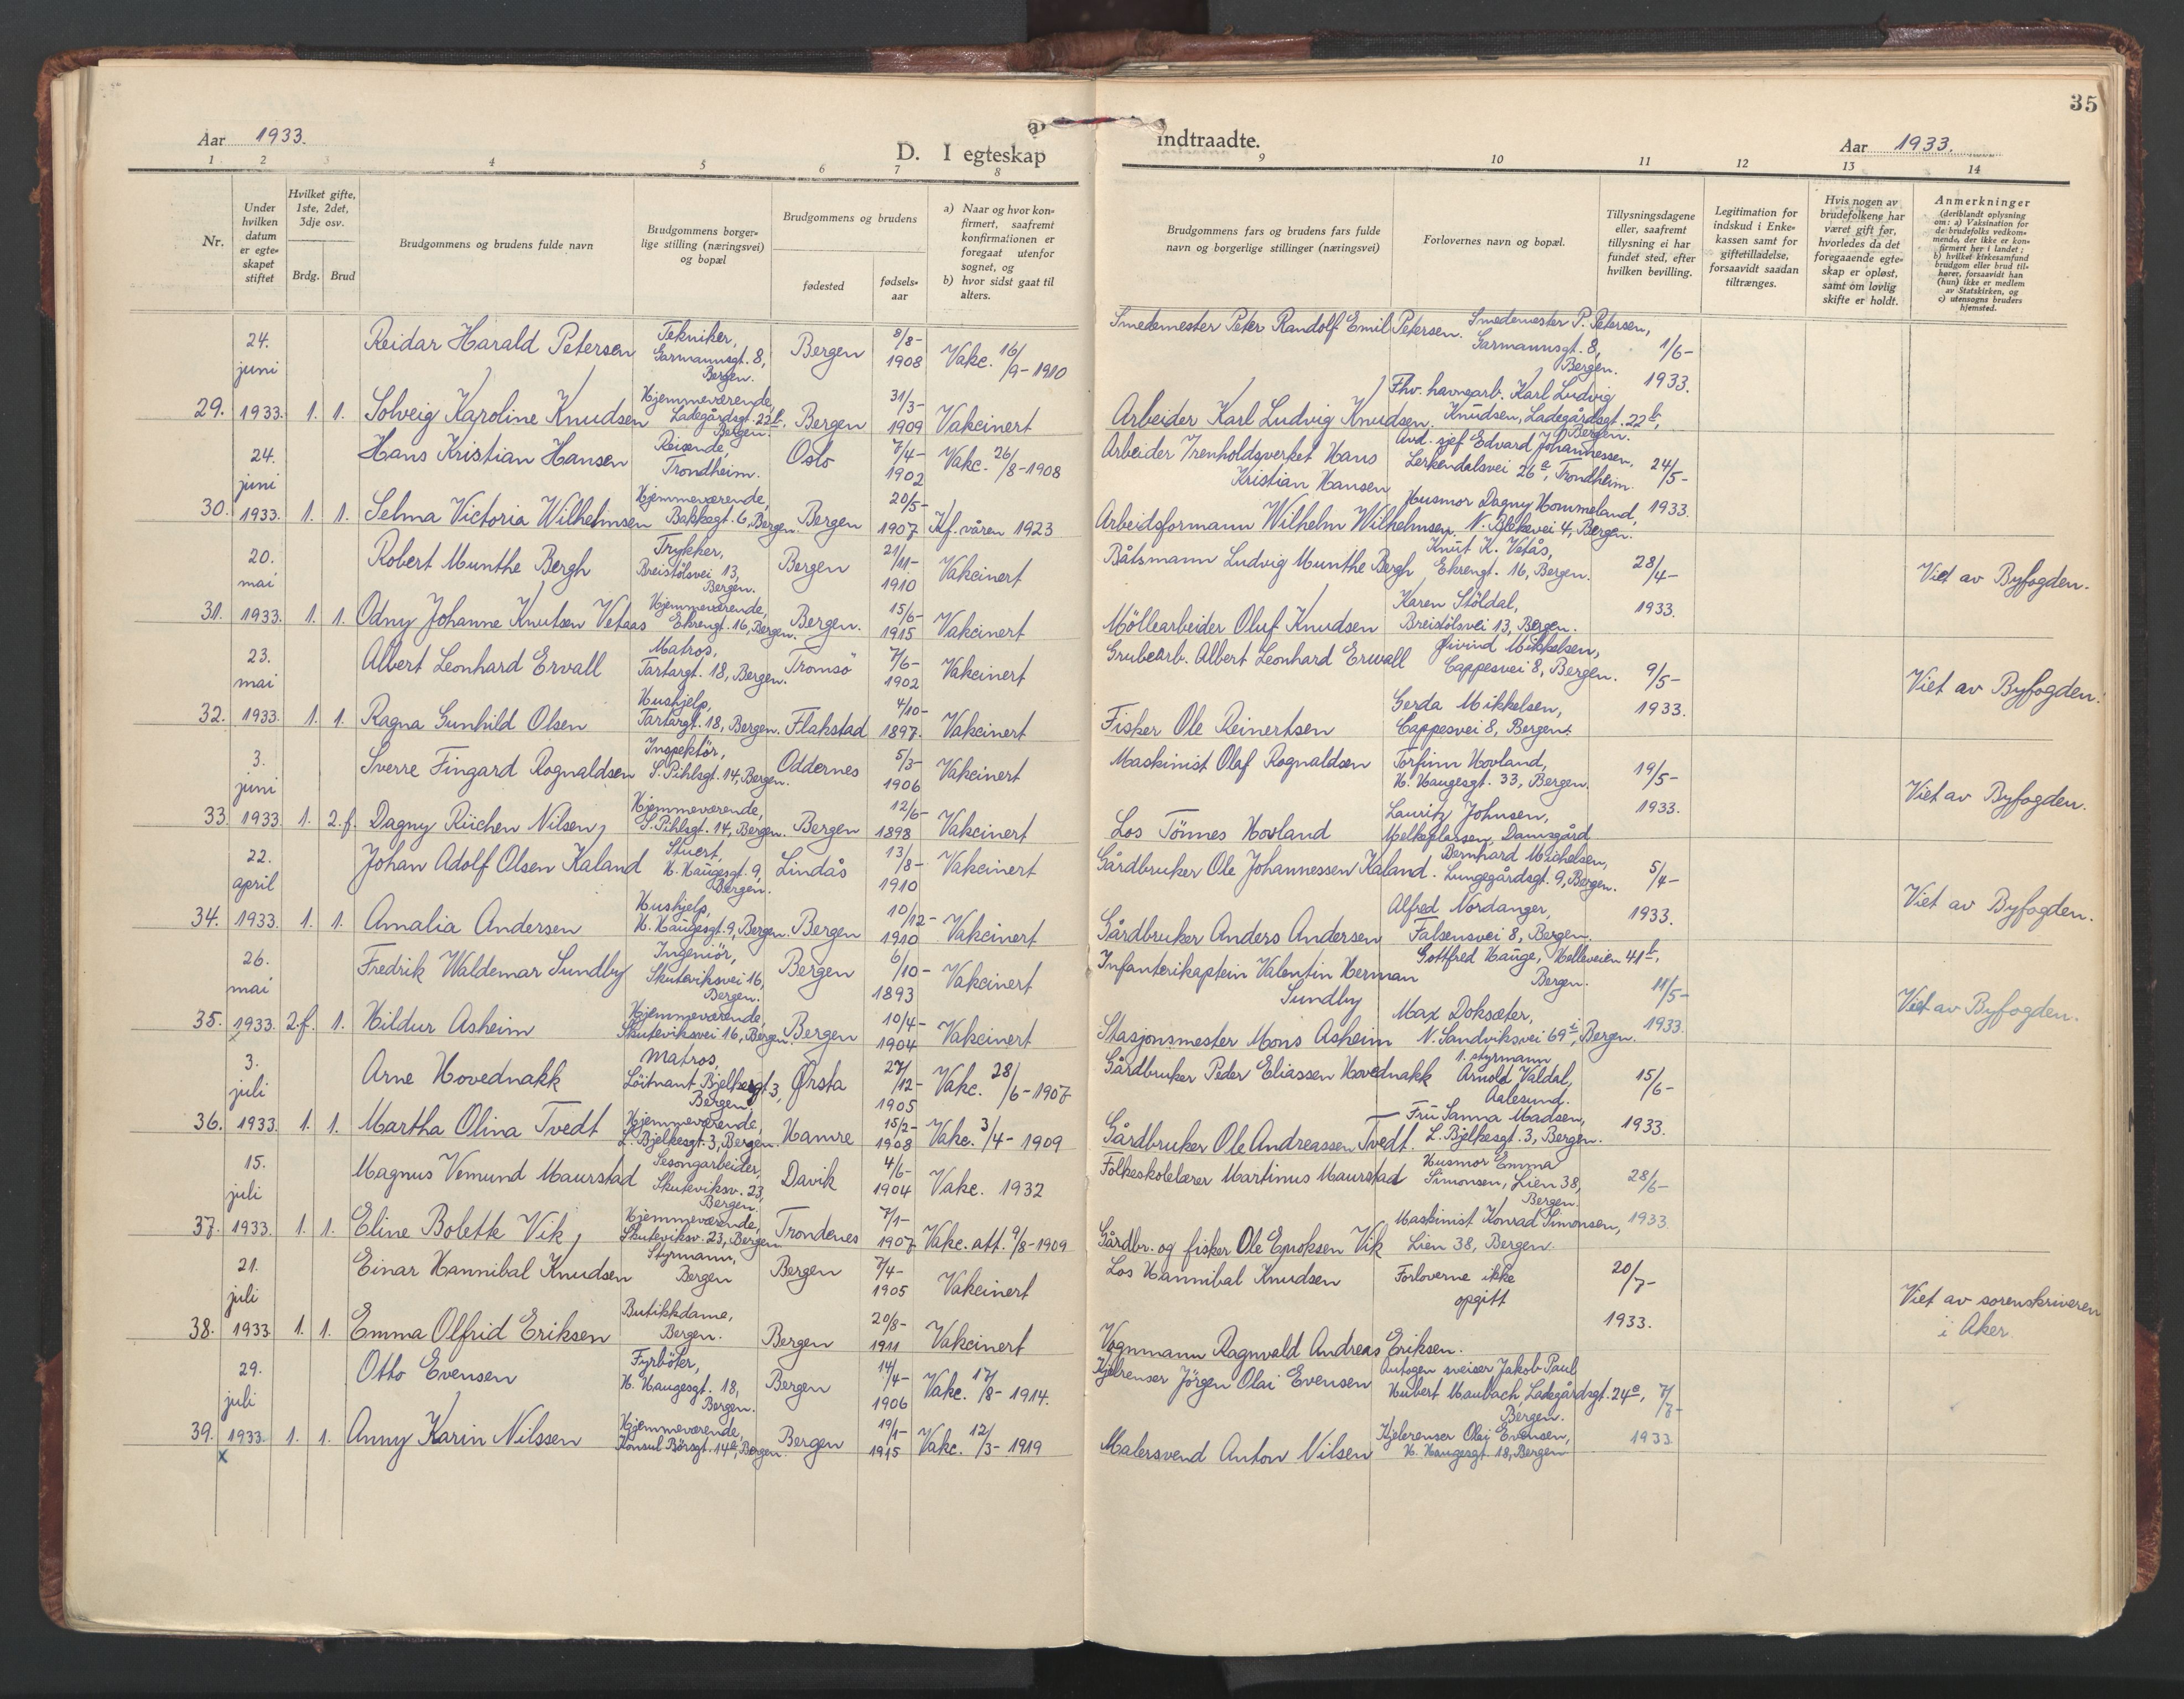 35
Aar 1933.
D. I egteskap indtraadte.
Aar 1933.
1 2 3 4 5 6 7 8 9 10 11 12 13 14
Nr.
Under hvilken datum er egte-skapet stiftet
Hvilket gifte, 1ste, 2det, 3dje osv.
Brdg. Brud
Brudgommens og brudens fulde navn
Brudgommens borger-lige stilling (næringsvei) og bopæl
Brudgommens og brudens
fødested
fødsels-aar
a) Naar og hvor kon-firmert, saafremt konfirmationen er foregaat utenfor sognet, og
b) hvor sidst gaat til alters.
Brudgommens fars og brudens fars fulde navn og borgerlige stillinger (næringsvei)
Forlovernes navn og bopæl.
Tillysningsdagene eller, saafremt tillysning ei har fundet sted, efter hvilken bevilling.
Legitimation for indskud i Enke-kassen samt for giftetilladelse, forsaavidt saadan tiltrænges.
Hvis nogen av brudefolkene har været gift før, hvorledes da det foregaaende egte-skap er opløst, samt om lovlig skifte er holdt.
Anmerkninger
(deriblandt oplysning om: a) Vaksination for de brudefolks vedkom-mende, der ikke er kon-firmert her i landet; b) hvilket kirkesamfund brudgom eller brud til-hører, forsaavidt han (hun) ikke er medlem av Statskirken, og c) utensogns bruders hjemsted.
24. juni Reidar Harald Petersen Tekniker, Garmannsgt. 8, Bergen. Bergen 8/8-1908 Vakc. 16/9-1910 Smedemester Peter Randolf Emil Petersen. Smedemester P. Petersen, Garmannsgt. 8, Bergen. 1/6-
29. 1933. 1. 1. Solveig Karoline Knudsen Hjemmeværende, Ladegårdsgt. 22b, Bergen. Bergen 31/3-1909 Vakcinert Arbeider Karl Ludvig Knudsen. Fhv. havnearb. Karl Ludvig Knudsen, Ladegårdsgt. 22b, Bergen. 1933.
24. juni Hans Kristian Hansen Reisende, Trondheim. Oslo 7/4-1902 Vakc. 26/8-1908 Arbeider Irenholdsverket Hans Kristian Hansen Avd. sjef Edvard Johannessen, Lerkendalsvei 26a, Trondheim. 24/5-
30. 1933. 1. 1. Selma Victoria Wilhelmsen Hjemmeværende, Bakkegt. 6, Bergen. Bergen 20/5-1907 Kf. våren 1923 Arbeidsformann Wilhelm Wilhelmsen. Husmor Dagny Hommeland, N. Blekevei 4, Bergen. 1933.
20. mai Robert Munthe Bergh Trykker, Breistölsvei 13, Bergen. Bergen 21/11-1910 Vakcinert Båtsmann Ludvig Munthe Bergh Knut K. Vetås, Ekrengt. 16, Bergen. 28/4- Viet av Byfogden.
31. 1933. 1. 1. Odny Johanne Knutsen Vetaas Hjemmeværende, Ekrengt. 16, Bergen. Bergen. 15/6-1915 Vakcinert Möllearbeider Oluf Knudsen Karen Stöldal, Breistölsvei 13, Bergen. 1933.
23. mai Albert Leonhard Ervall Matros, Tartargt. 18, Bergen. Tromsö 7/6-1902 Vakcinert Grubearb. Albert Leonhard Erwall Øivind Mikkelsen, Cappesvei 8, Bergen. 9/5- Viet av Byfogden.
32. 1933. 1. 1. Ragna Gunhild Olsen Hushjelp, Tartargt. 18, Bergen. Flakstad 4/10-1897. Vakcinert Fisker Ole Reinertsen Gerda Mikkelsen, Cappesvei 8, Bergen. 1933.
3. juni Sverre Fingard Rognaldsen Inspektör, S. Pihlsgt. 14, Bergen. Oddernes 5/3-1906 Vakcinert Maskinist Olaf Rognaldsen Torfinn Hovland, H. Haugesgt. 33, Bergen. 19/5- Viet av Byfogden.
33. 1933. 1. 2. f. Dagny Rüchen Nilsen, Hjemmeværende, S. Pihlsgt. 14, Bergen. Bergen 12/6-1898 Vakcinert Los Tönnes Hovland Lauritz Johnsen, Melkeplassen, Damsgård 1933.
22. april Johan Adolf Olsen Kaland Stuert, H. Haugesgt. 9, Bergen. Lindås 13/8-1910 Vakcinert Gårdbruker Ole Johannessen Kaland. Bernhard Michelsen, Lungegårdsgt. 9, Bergen. 5/4- Viet av Byfogden.
34. 1933. 1. 1. Amalia Andersen Hushjelp, H. Haugesgt. 9, Bergen. Bergen 10/12-1910 Vakcinert Gårdbruker Anders Andersen Alfred Nordanger, Falsensvei 8, Bergen. 1933.
26. mai Fredrik Waldemar Sundby Ingeniör, Skuteviksvei 16, Bergen. Bergen 6/10-1893 Vakcinert Infanterikaptein Valentin Herman Sundby Gottfred Hauge, Helleveien 41b, Bergen. 11/5- Viet av Byfogden.
35. 1933. 2. f. 1. Hildur Asheim Hjemmeværende, Skuteviksvei 16, Bergen. Bergen 10/4-1904 Vakcinert Stasjonsmester Mons Asheim Max Doksæter, N. Sandviksvei 69, Bergen. 1933.
3. juli Arne Hovednakk Matros, Löitnant Bjelkesgt. 3, Bergen Ørsta 27/12-1905 Vakc. 28/6-1907 Gårdbruker Peder Eliassen Hovednakk 1. styrmann Arnold Valdal, Aalesund. 15/6-
36. 1933. 1. 1. Martha Olina Tvedt Hjemmeværende, L. Bjelkesgt. 3, Bergen. Hamre 15/2-1908 Vakc. 3/4-1909 Gårdbruker Ole Andreassen Tvedt. Fru Sanna Madsen, L. Bjelkesgt. 3, Bergen. 1933.
15. juli Magnus Vemund Maurstad Sesongarbeider, Skuteviksv. 23, Bergen. Davik 4/6-1904 Vakc. 1932 Folkeskolelærer Martinus Maurstad Husmor Emma Simonsen, Lien 38, Bergen. 28/6-
37. 1933. 1. 1. Eline Bolette Vik, Hjemmeværende, Skuteviksv. 23, Bergen. Trondenes 7/1-1907 Vakc. att. 9/8-1909 Gårdbr. og fisker Ole Enoksen Vik Maskinist Konrad Simonsen, Lien 38, Bergen. 1933.
21. juli Einar Hannibal Knudsen Styrmann, Bergen Bergen 7/4-1905 Vakcinert Los Hannibal Knudsen Forloverne ikke opgitt 20/7- Viet av sorenskriveren i Aker.
38. 1933 1. 1. Emma Olfrid Eriksen Butikkdame, Bergen. Bergen 20/8-1911 Vakcinert Vognmann Ragnvald Andreas Eriksen. 1933.
29. juli Otto Evensen Fyrböter, H. Haugesgt. 18, Bergen. Bergen 14/4-1906 Vakc. 17/8-1914. Kjelrenser Jörgen Olai Evensen Autogen sveiser Jakob Paul Hubert Maubach, Ladegårdsgt. 24a, Bergen. 7/7-
39. 1933. 1. 1. Anny Karin Nilssen Hjemmeværende, Konsul Börsgt. 14a, Bergen. Bergen 19/1-1915 Vakc. 12/3-1919 Malersvend Anton Nilsen Kjelerenser Olai Evensen, H. Haugesgt. 18, Bergen 1933
x